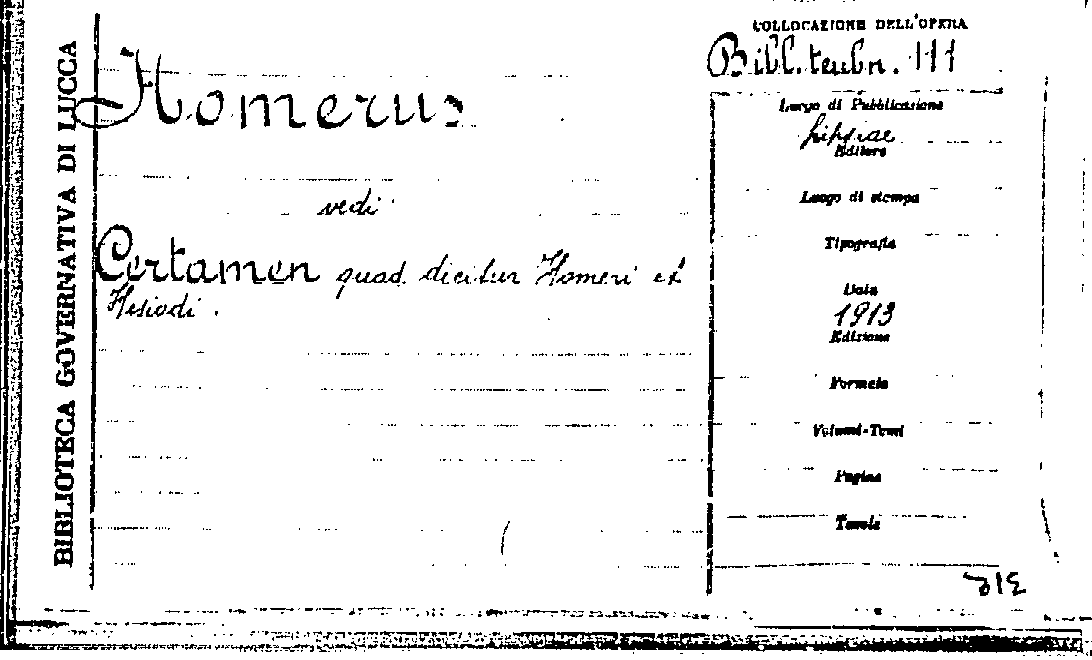 BIBLIOTECA GOVERNATIVA DI LUCCA
Homerus
vedi
Certamen quad dicitur Homeri et
Hesiodi.
COLLOCAZIONE DELL'OPERA
Bibl. teubn. 111
Luogo di Pubblicazione
Lipsiae
Editore
Luogo di stampa
Tipografia
Data
1913
Edizione
Formato
Volumi-Tomi
Pagine
Tavole